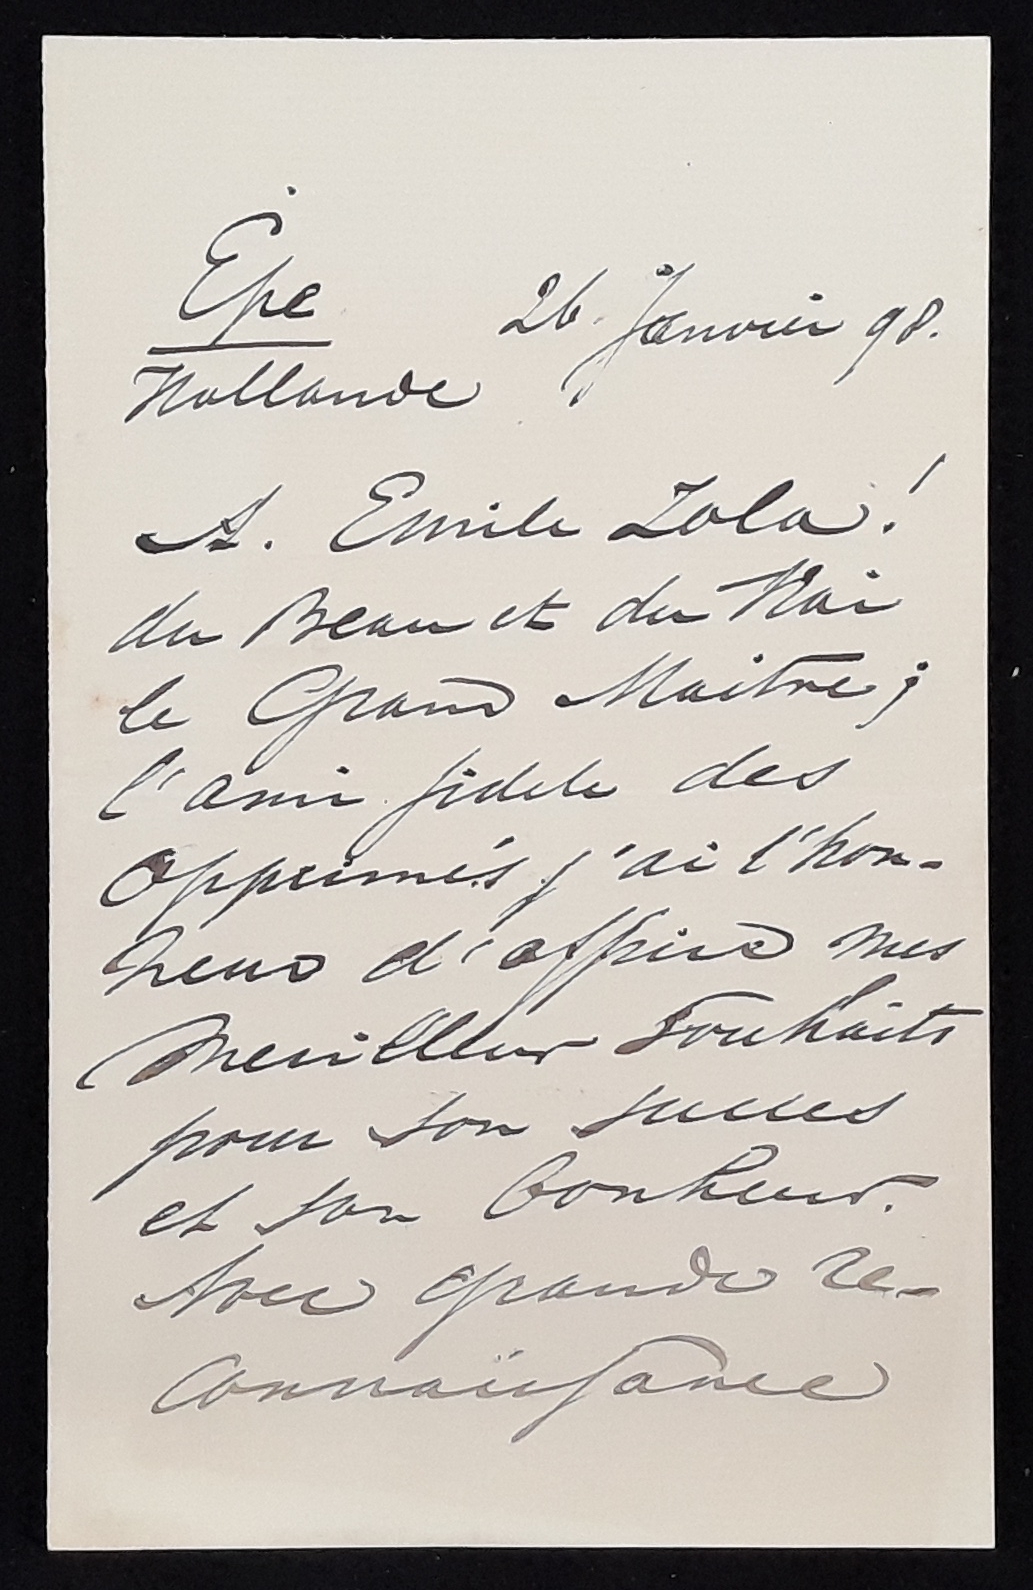 Epe 26 Janvier 98.
Hollande
A. Emile Zola!
du Beau et du Vrai
le Grand Maitre;
l'ami fidele des
Opprimés, j'ai l'hon-
neur d'offrir mes
meuilleur souhaits
pour son succes
et son bonheur.
Avec grande re-
connaissance